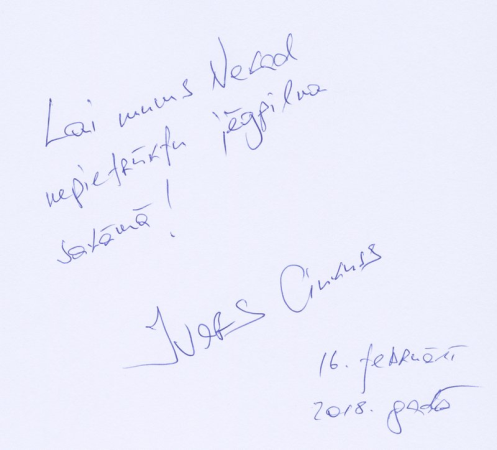 Lai mums Nekad
nepietrūktu jēgpilna
satāmā!
Ivars Cinkuss
16. februārī
2018. gadā